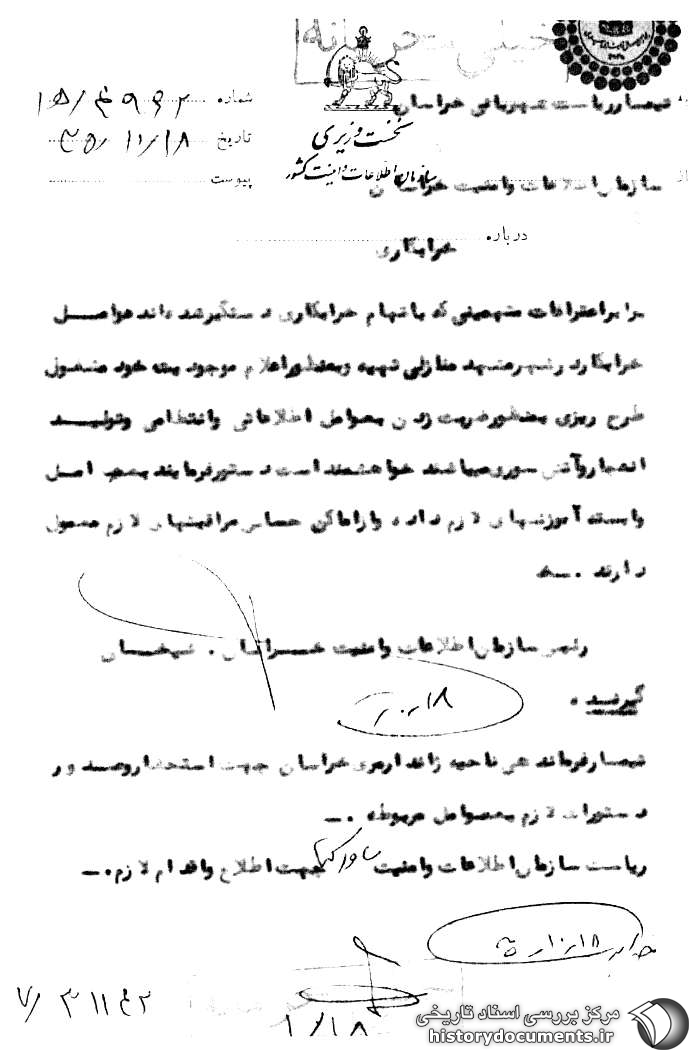 خیلی محرمانه
تیمسار ریاست شهربانی خراسان
نخست وزیری
سازمان اطلاعات و امنیت کشور
شماره ۱۵/۴۹۶۲
تاریخ ۳۵/۱۱/۱۸
پیوست
سازمان اطلاعات و امنیت خراسان
درباره خرابکاری
بنا بر اعترافات متهمینی که باتهام خرابکاری دستگیر شده اند عوامل
خرابکار در شهر مشهد منازلی تهیه و بمنظور اعلام موجودیت خود مشغول
طرح ریزی بمنظور ضربت زدن بعوامل اطلاعاتی و انتظامی و تولید
انفجار و آتش سوری میباشند خواهشمند است دستور فرمایند بعوامل
وابسته آموزشهای لازم داده و از اماکن حساس مراقبتهای لازم معمول
دارند .ـ
رئیس سازمان اطلاعات و امنیت خراسان . شیخان
گیرنده .
تیمسار فرمانده ناحیه ژاندارمری خراسان جهت استحضار و صدور
دستورات لازم بعوامل مربوطه .ـ
ریاست سازمان اطلاعات و امنیت جهت اطلاع و اقدام لازم.ـ
۷/۳۱۱۴۲
۱/۱۸
مرکز بررسی اسناد تاریخی
historydocuments.ir